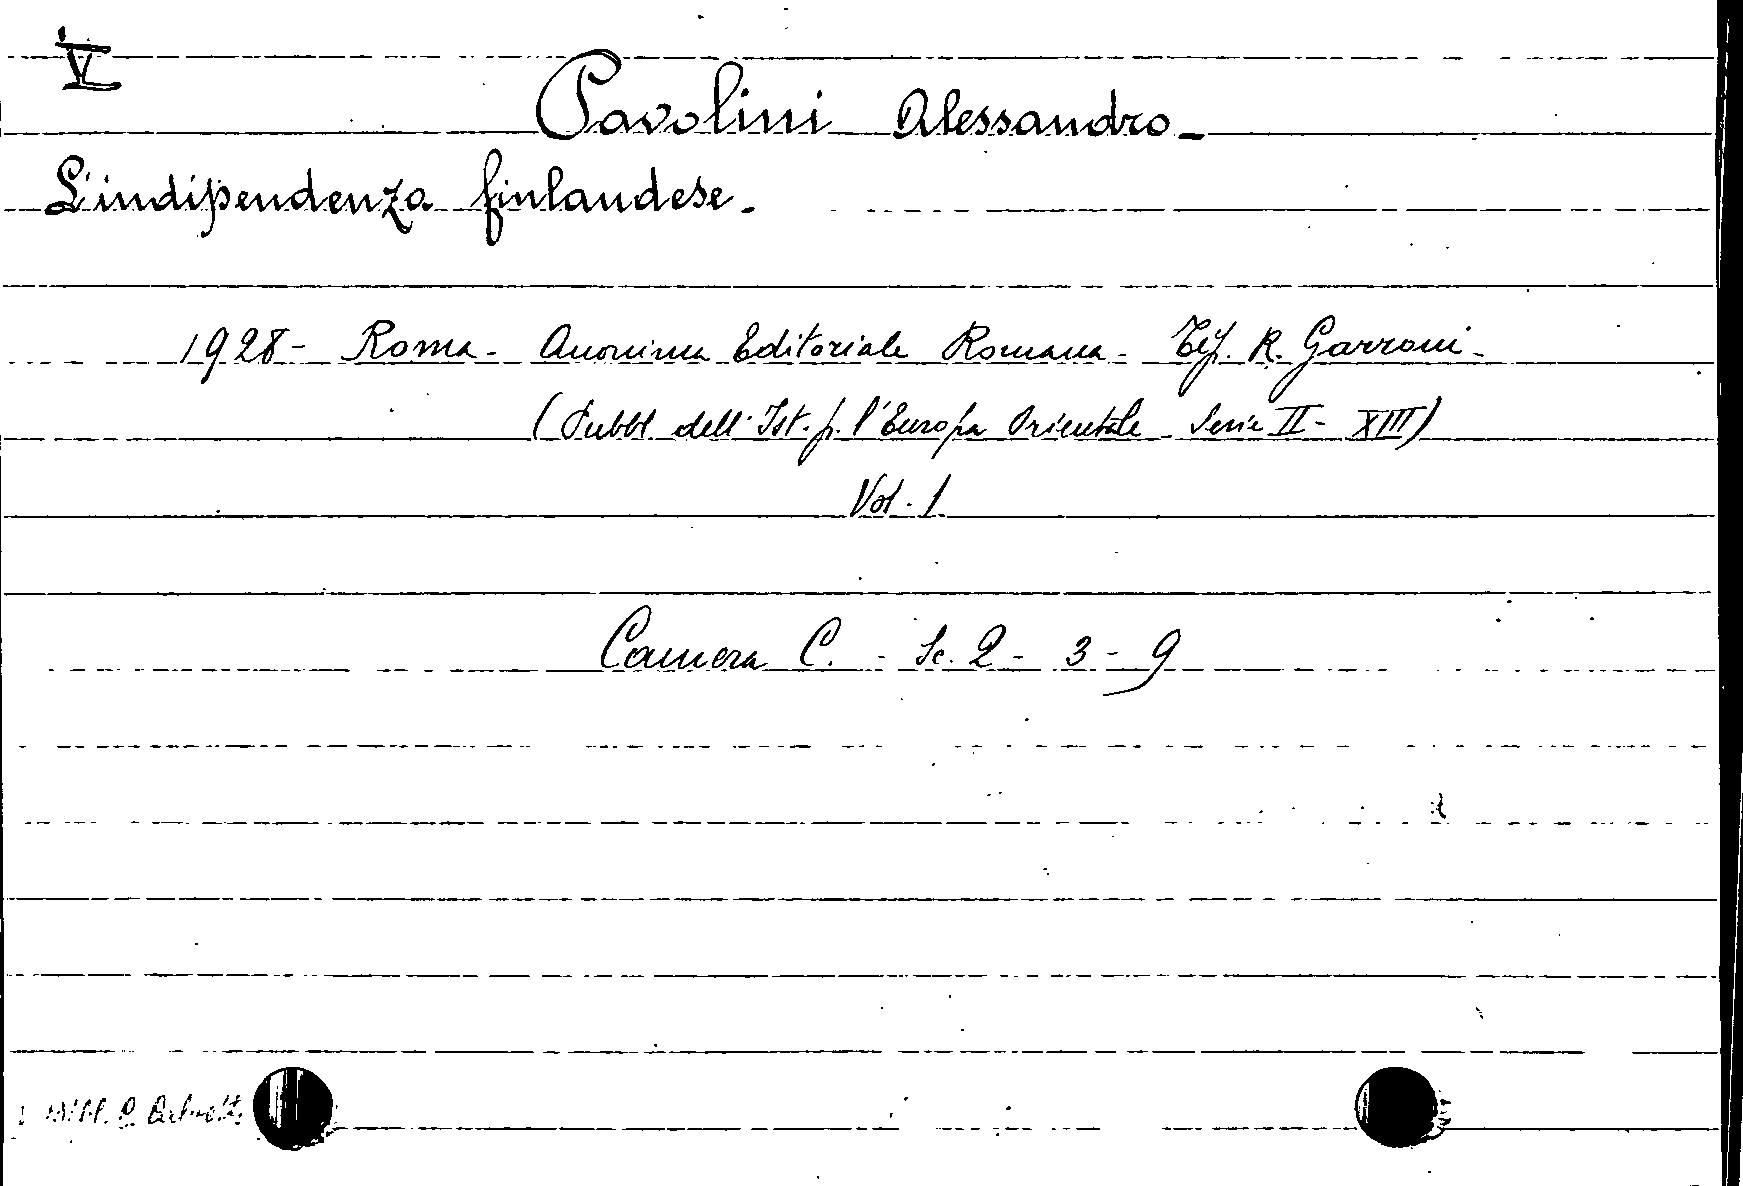 V
Pavolini Alessandro -
L'indipendenza finlandese.
1928 - Roma - Anonima Editoriale Romana - Tip. R. Garroni -
(Pubbl. dell'Ist. p. l'Europa Orientale - Serie II - XIII)
Vol. 1
Camera C. - Sc. 2 - 3 - 9